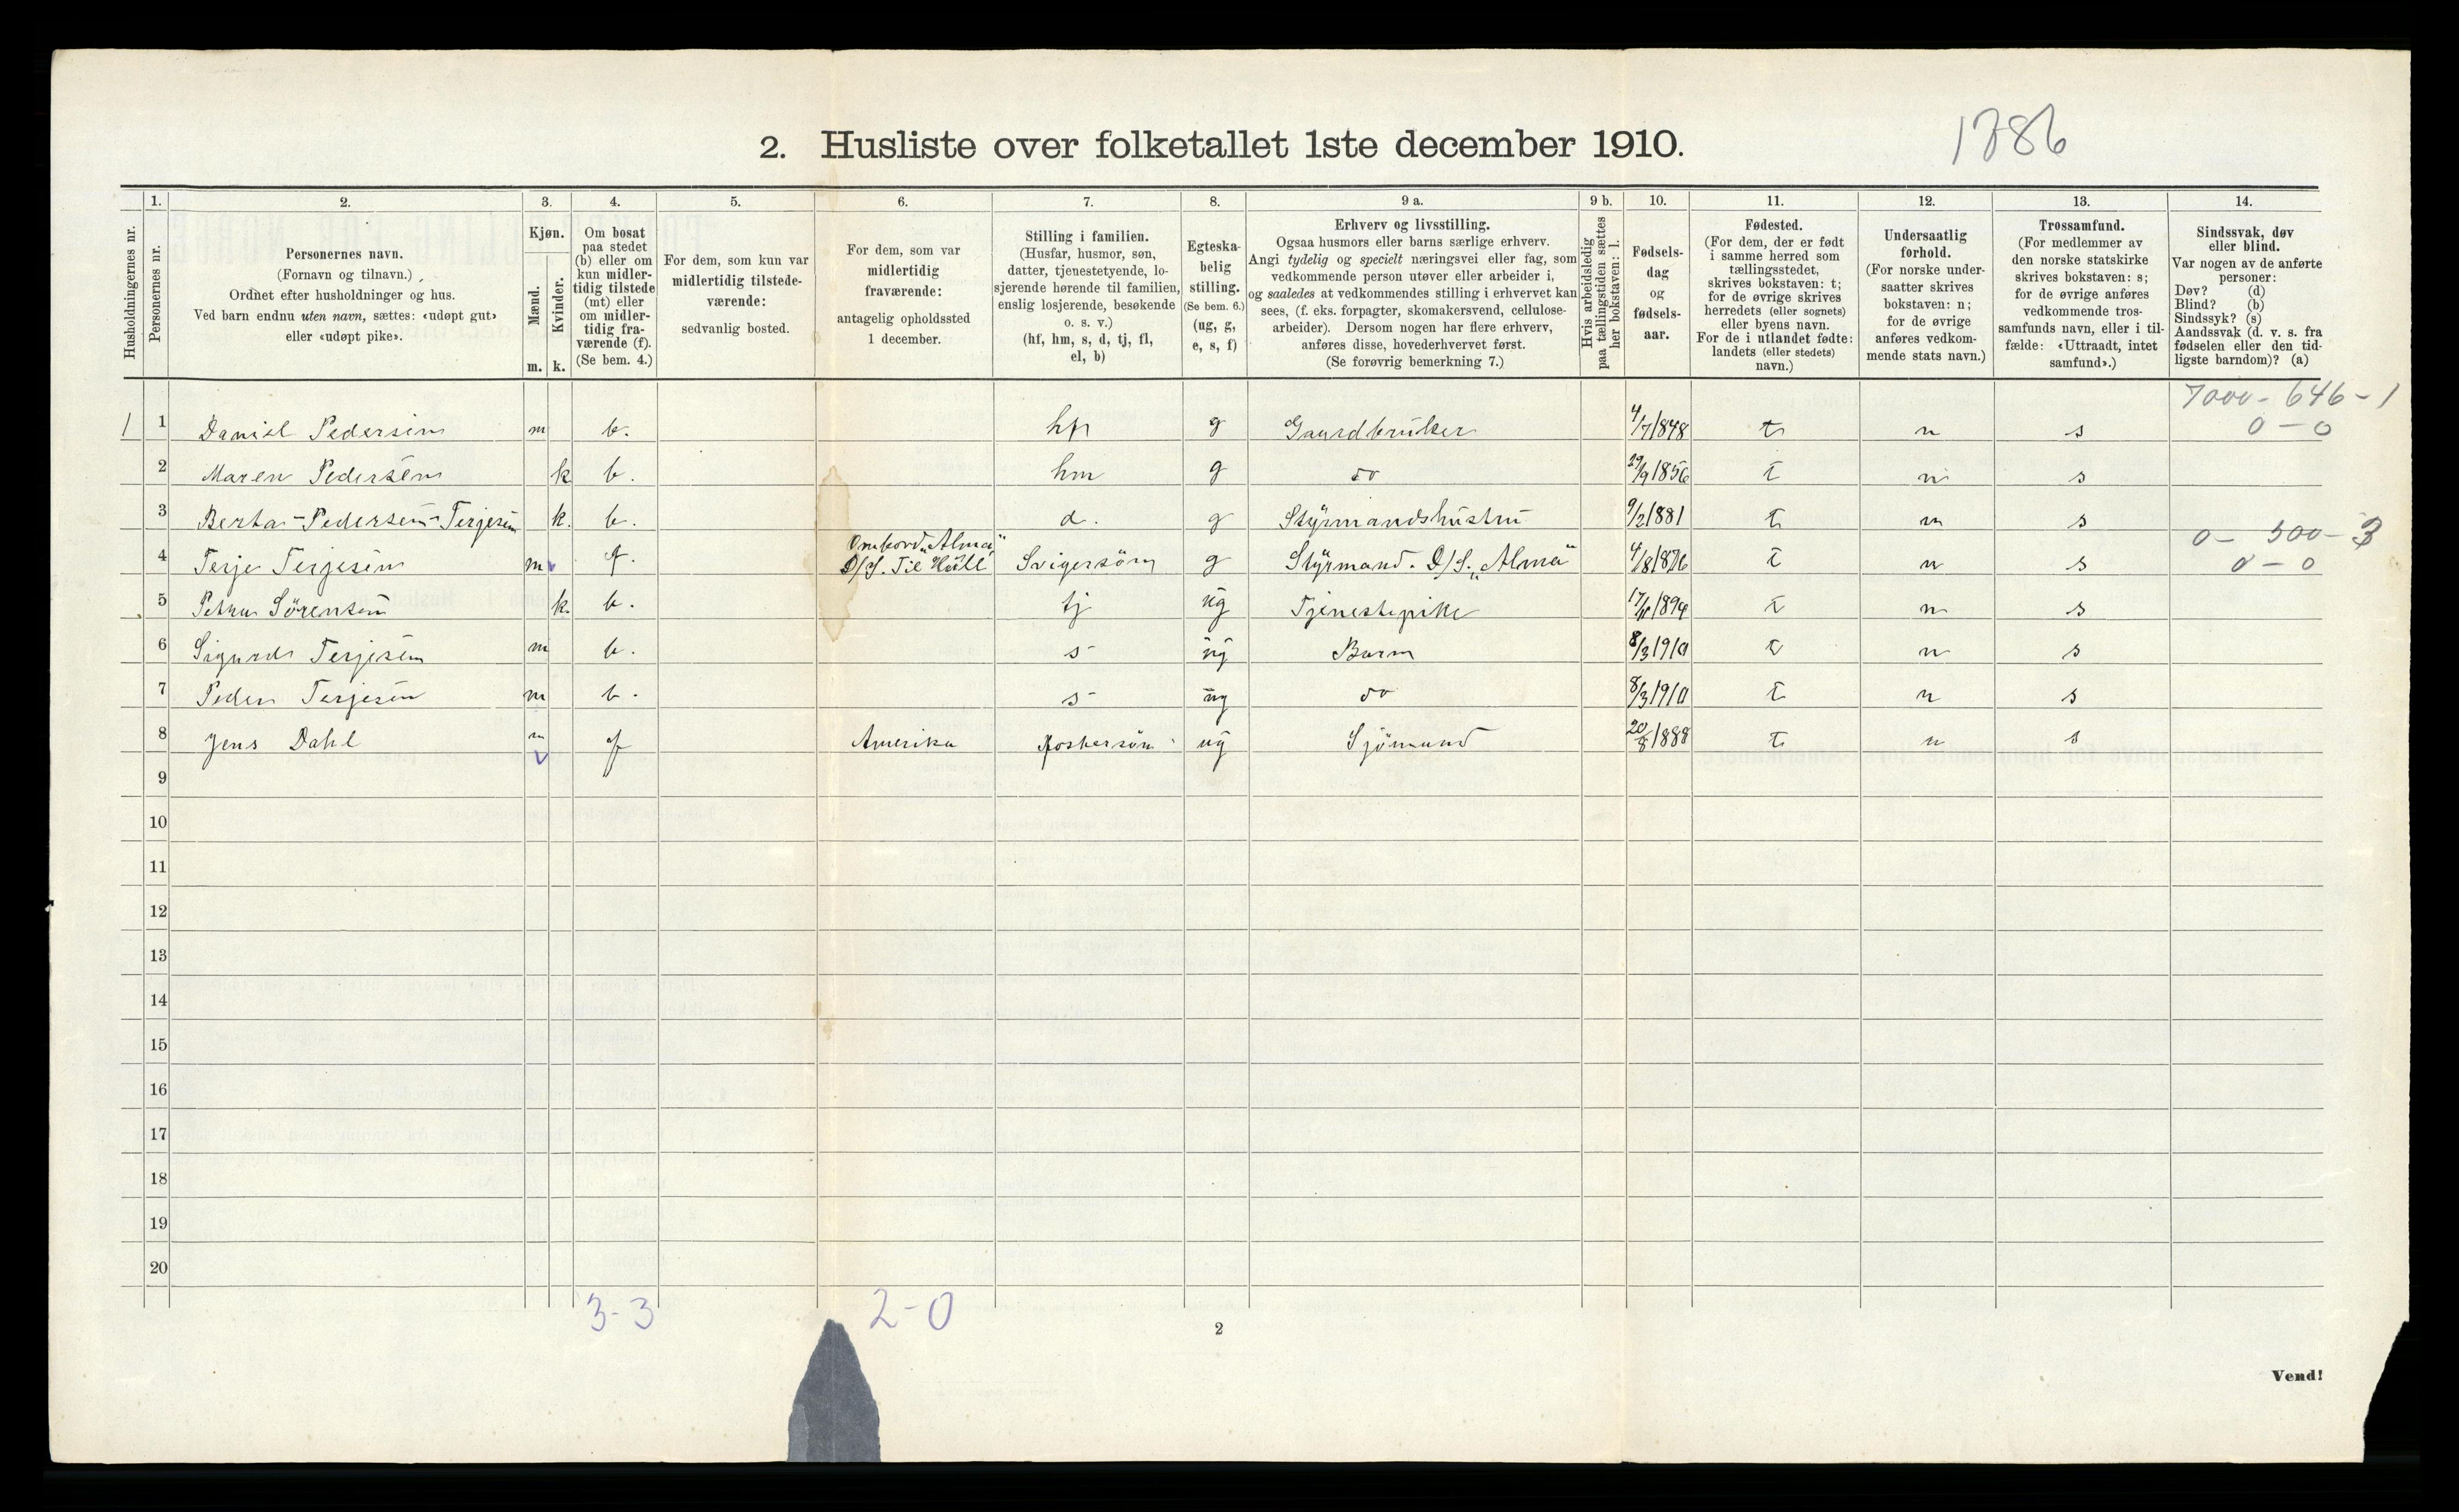 1886
2. Husliste over folketallet 1ste december 1910.
Husholdningernes nr.
1.
Personernes nr.
2.
Personernes navn.
(Fornavn og tilnavn.)
Ordnet efter husholdninger og hus.
Ved barn endnu uten navn, sættes: «udøpt gut»
eller «udøpt pike».
3.
Kjøn.
Mænd.
Kvinder.
m. k.
4.
Om bosat
paa stedet
(b) eller om
kun midler-
tidig tilstede
(mt) eller
om midler-
tidig fra-
værende (f).
(Se bem. 4.)
5.
For dem, som kun var
midlertidig tilstede-
værende:
sedvanlig bosted.
6.
For dem, som var
midlertidig
fraværende:
antagelig opholdssted
1 december.
7.
Stilling i familien.
(Husfar, husmor, søn,
datter, tjenestetyende, lo-
sjerende hørende til familien,
enslig losjerende, besøkende
o. s. v.)
(hf, hm, s, d, tj, fl,
el, b)
8.
Egteska-
belig
stilling.
(Se bem. 6.)
(ug, g,
e, s, f)
9 a.
Erhverv og livsstilling.
Ogsaa husmors eller barns særlige erhverv.
Angi tydelig og specielt næringsvei eller fag, som
vedkommende person utøver eller arbeider i,
og saaledes at vedkommendes stilling i erhvervet kan
sees, (f. eks. forpagter, skomakersvend, cellulose-
arbeider). Dersom nogen har flere erhverv,
anføres disse, hovederhvervet først.
(Se forøvrig bemerkning 7.)
9 b.
Hvis arbeidsledig
paa tællingstiden sættes
her bokstaven: l.
10.
Fødsels-
dag
og
fødsels-
aar.
11.
Fødested.
(For dem, der er født
i samme herred som
tællingsstedet,
skrives bokstaven: t;
for de øvrige skrives
herredets (eller sognets)
eller byens navn.
For de i utlandet fødte:
landets (eller stedets)
navn.)
12.
Undersaatlig
forhold.
(For norske under-
saatter skrives
bokstaven: n;
for de øvrige
anføres vedkom-
mende stats navn.)
13.
Trossamfund.
(For medlemmer av
den norske statskirke
skrives bokstaven: s;
for de øvrige anføres
vedkommende tros-
samfunds navn, eller i til-
fælde: «Uttraadt, intet
samfund».)
14.
Sindssvak, døv
eller blind.
Var nogen av de anførte
personer:
Døv? (d)
Blind? (b)
Sindssyk? (s)
Aandssvak (d. v. s. fra
fødselen eller den tid-
ligste barndom)? (a)
7000 - 646 - 1
0 - 0
1 1 Daniel Pedersen m b. hf g Gaardbruker 4/7 1848 t n s
2 Maren Pedersen k b. hm g do 29/9 1856 t n s
3 Berta-Pedersen-Terjesen k. b. d. g Styrmandshustru 9/2 1881 t n s
0 - 500 - 3
0 - 0
4 Terje Terjesen m f. Ombord „Alma" D/S. Til Hull Svigersön g Styrmand. D/S. „Alma" 4/8 1876 t n s
5 Petra Sörensen k. b. tj ug Tjenestepike t n s
6 Sigurd Terjesen m b. s ug Barn 8/3 1910 t n s
7 Peder Terjesen m b. s ug do 8/3 1910 t n s
8 Jens Dahl m f Amerika fostersön ug Sjömand 20/8 1888 t n s
9
10
11
12
13
14
15
16
17
18
19
20
3-3
2-0
2
Vend!